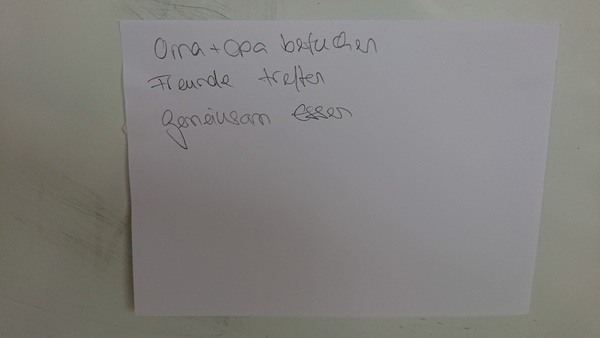 Oma + Opa besuchen
Freunde treffen
gemeinsam essen